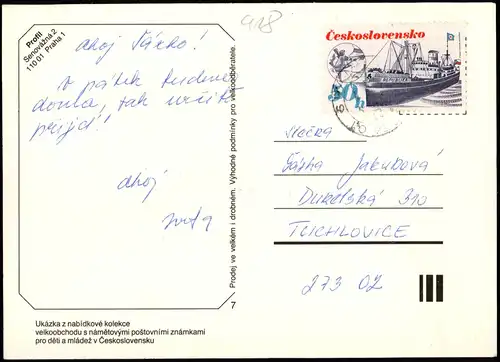 Profil
Senovážná 2
110 01 Praha 1
918
ahoj Šárko!
v pátek budeme
doma, tak určitě
přijď!
ahoj
Prodej ve velkém i drobném. Výhodné podmínky pro velkoodběratele.
7
Československo
50h
slečka
Šárka Jakubová
Dukelská 310
TUCHLOVICE
273 02
Ukázka z nabídkové kolekce
velkoobchodu s námětovými poštovními známkami
pro děti a mládež v Československu